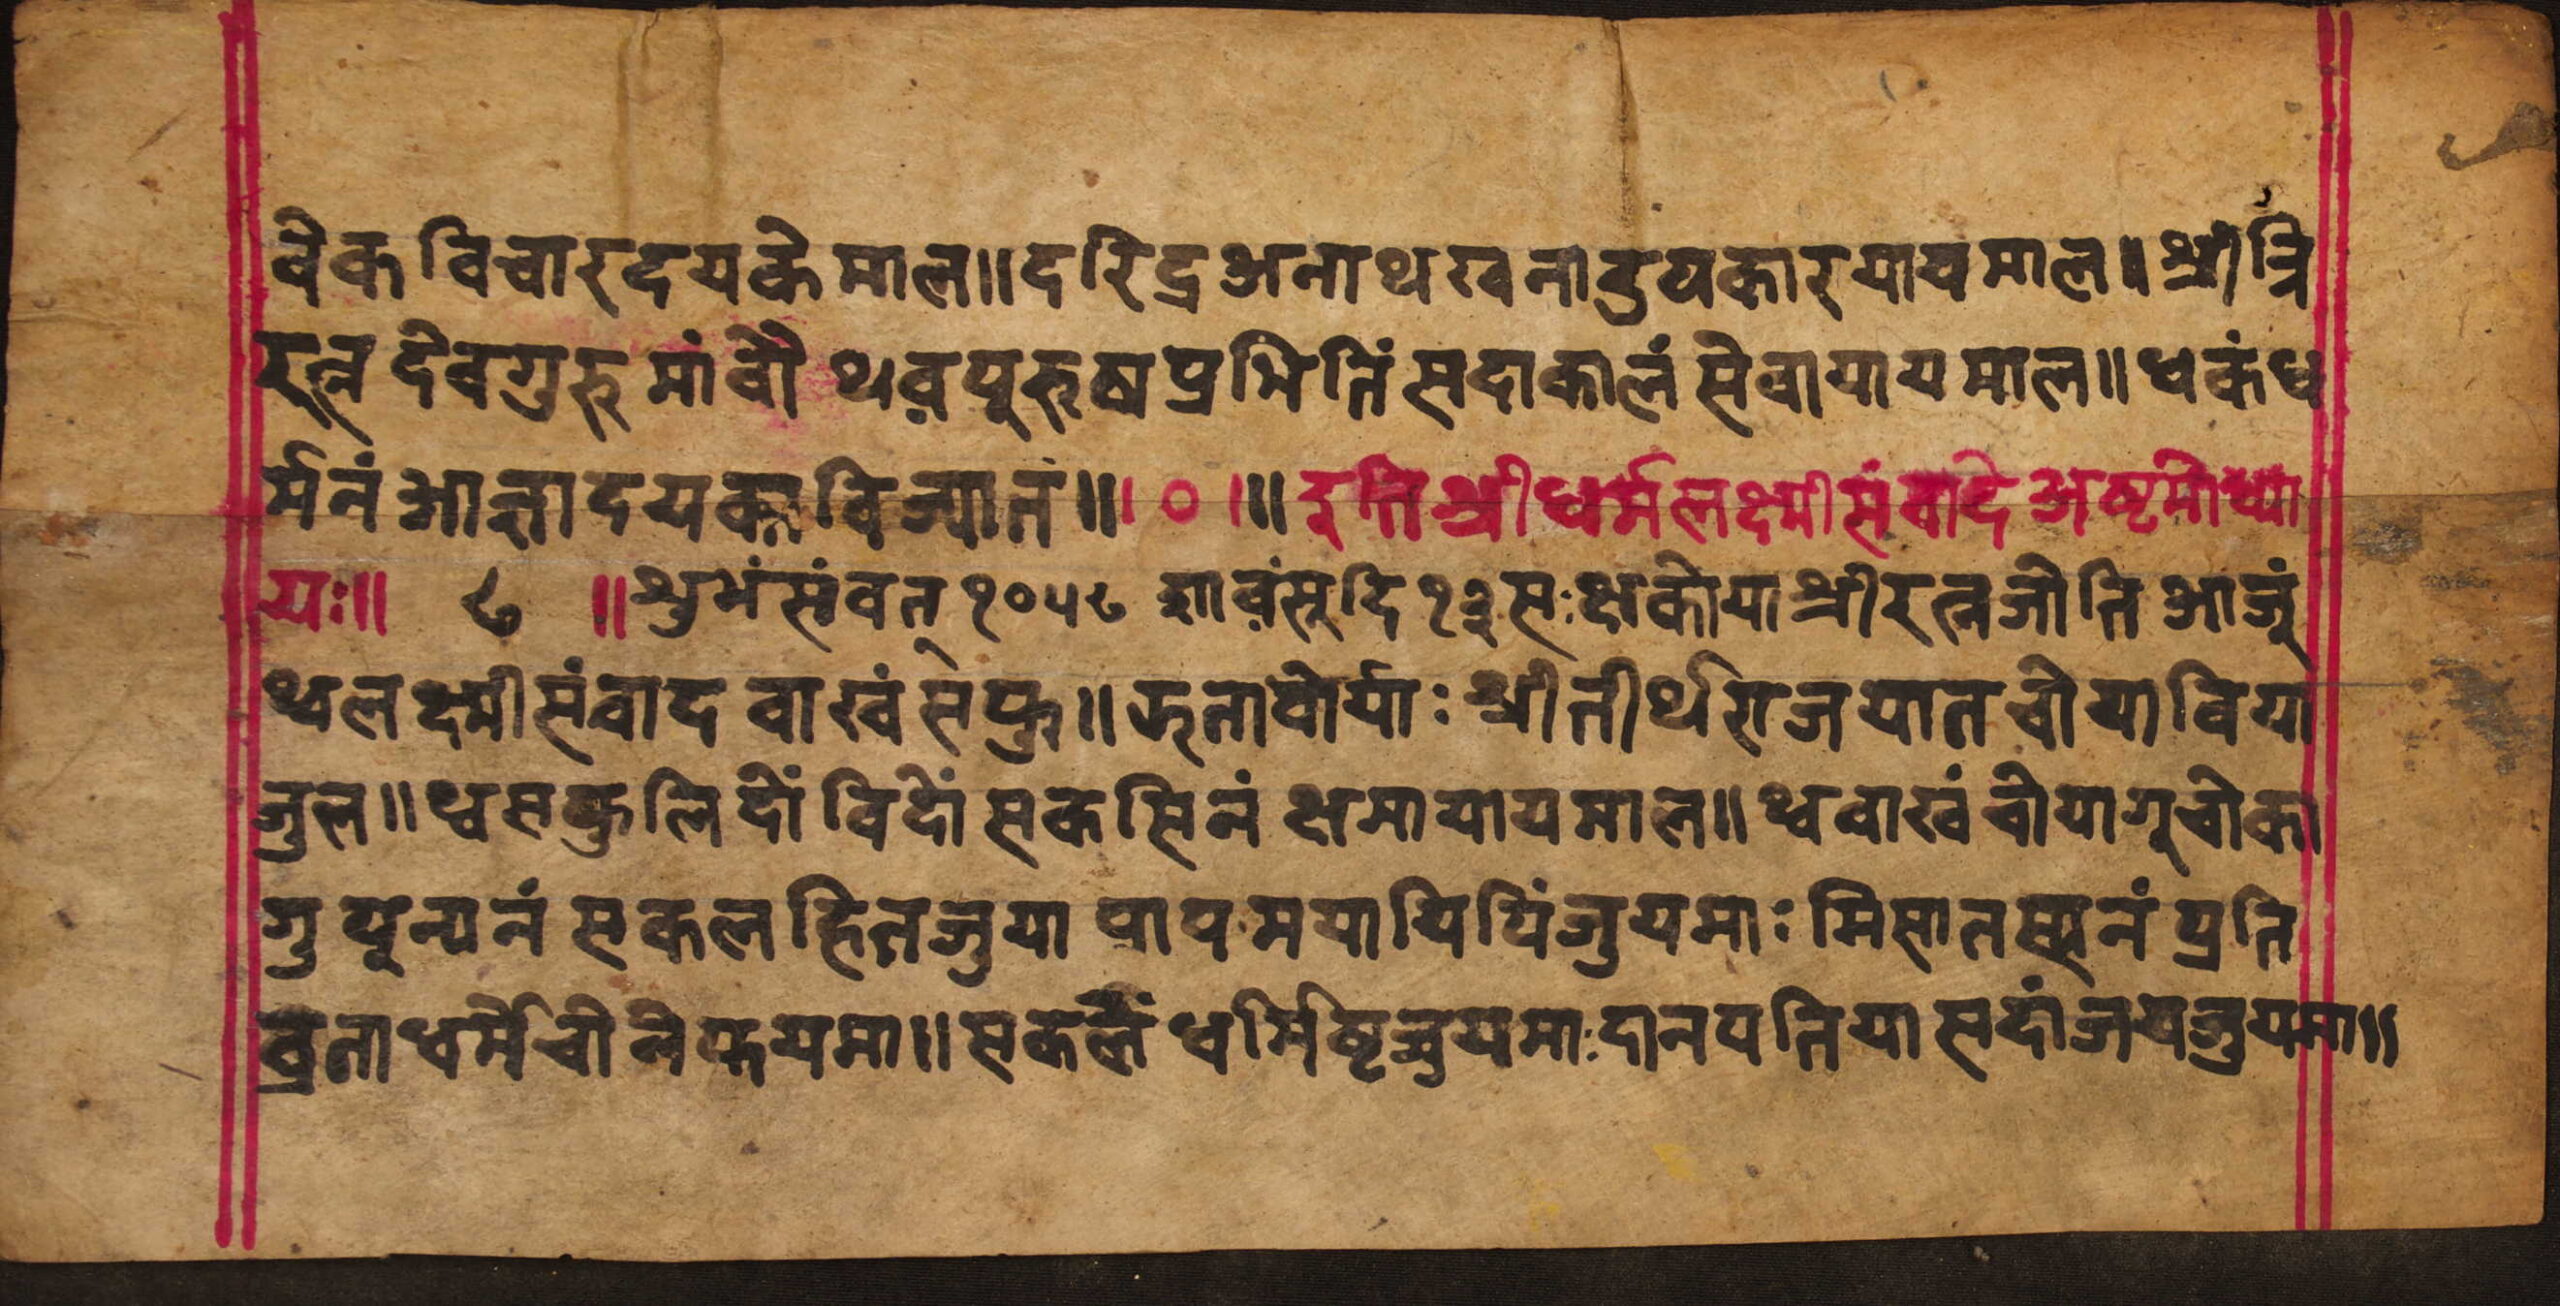 वेक विचारदयके माल॥ दरिद्र अनाथ खनावुपकार यायमाल॥ श्रीत्रि
रत्न देवगुरु मांवौ थव़पूरुष प्रभितिं सदाकालं सेवायायमाल॥ ध्वकंध
र्मनं आज्ञादयका विज्यातं॥ । ० । ॥ इति श्रीधर्मलक्ष्मीसंवादे अष्टमोध्या
यः॥ ८ ॥ शुभंसंवत् १०५८ ञाव़ंसूदि १३ सःक्षकोया श्रीरत्नजोति आजूं
थ्वलक्ष्मीसंवाद वाखं सफु॥ ऋताचोर्याः श्रीतीर्थराजयात चोया विया
जुल॥ थ्वसफुलि दों विदों सकसिनं क्षमायायमाल॥ थ्ववाखं चोयागूचोका
गु पून्यनं सकल हितजुया पाप मयायिपिं जुयमाः मिसातस्यनं प्रति
व्रता धर्मचोने फयमा॥ सकलें धर्मिष्टजुयमाः दानपतिया सदां जयजुयमा॥